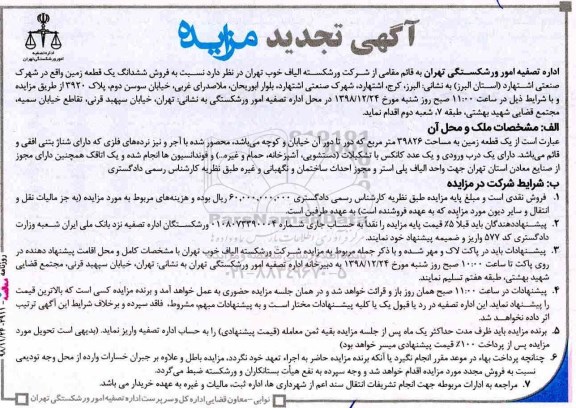 آگهی تجدید مزایده
اداره تصفیه
امور ورشکستگی تهران
اداره تصفیه امور ورشکستگی تهران به قائم مقامی از شرکت ورشکسته الیاف خوب تهران در نظر دارد نسبت به فروش ششدانگ یک قطعه زمین واقع در شهرک
صنعتی اشتهارد (استان البرز) به نشانی: البرز، کرج، اشتهارد، شهرک صنعتی اشتهارد، بلوار ابوریحان، ملاصدرای غربی، خیابان سوسن دوم، پلاک ۳۹۲۰ از طریق مزایده
و با شرایط ذیل در ساعت ۱۱:۰۰ صبح روز شنبه مورخ ۱۳۹۸/۱۲/۲۴ در محل اداره تصفیه امور ورشکستگی به نشانی: تهران، خیابان سپهبد قرنی، تقاطع خیابان سمیه،
مجتمع قضایی شهید بهشتی، طبقه ۷، شعبه دوم اقدام نماید.
الف: مشخصات ملک و محل آن
عبارت است از یک قطعه زمین به مساحت ۳۹۸۲۶ متر مربع که دور تا دور آن خیابان و کوچه می‌باشد، محصور شده با آجر و نیز نرده‌های فلزی که دارای شناژ بتنی افقی و
قائم می‌باشد. دارای یک درب ورودی و یک عدد کانکس با تشکیلات (دستشویی، آشپزخانه، حمام و غیره..) و فونداسیون ها انجام شده و یک اتاقک همچنین دارای مجوز
از صنایع معادن استان تهران جهت واحد الیاف پلی استر و مجوز احداث ساختمان و نگهبانی و غیره طبق نظریه کارشناس رسمی دادگستری
ب: شرایط شرکت در مزایده
۱. فروش نقدی است و مبلغ پایه مزایده طبق نظریه کارشناس رسمی دادگستری ۶۰,۰۰۰,۰۰۰,۰۰۰ ریال بوده و هزینه‌های مربوط به مورد مزایده (به جز مالیات نقل و
انتقال و سایر دیون مورد مزایده که به عهده فروشنده است) به عهده طرفین است.
۲. پیشنهاددهندگان باید قبلا ۲۵٪ قیمت پایه مزایده را نقداً به حساب جاری شماره ۰۱۰۸۰۷۳۳۹۰۰۴ ورشکستگان اداره تصفیه نزد بانک ملی ایران شعبه وزارت
دادگستری کد ۵۷۷ واریز و ضمیمه پیشنهاد خود نمایند.
۳. پیشنهادات باید در پاکت لاک و مهر شده و با ذکر جمله مربوط به مزایده شرکت ورشکسته الیاف خوب تهران با مشخصات کامل و محل اقامت پیشنهاد دهنده در
روی پاکت تا ساعت ۱۰:۰۰ صبح روز شنبه مورخ ۱۳۹۸/۱۲/۲۴ به دبیرخانه اداره تصفیه امور ورشکستگی تهران به نشانی: تهران، خیابان سپهبد قرنی، مجتمع قضایی
شهید بهشتی، طبقه هفتم تسلیم نمایند.
۴. پیشنهادات در ساعت ۱۱:۰۰ صبح همان روز باز و قرائت خواهد شد و در همان جلسه مزایده حضوری به عمل خواهد آمد و برنده مزایده کسی است که بالاترین قیمت
را پیشنهاد نماید. این اداره تصفیه در رد یا قبول یک یا کلیه پیشنهادات مختار است و به پیشنهادات مبهم، مشروط، فاقد سپرده و برخلاف شرایط این آگهی ترتیب
اثر داده نخواهد شد.
۵. برنده مزایده باید ظرف مدت حداکثر یک ماه پس از جلسه مزایده بقیه ثمن معامله (قیمت پیشنهادی) را به حساب اداره تصفیه واریز نماید. (بدیهی است تحویل مورد
مزایده پس از پرداخت ۱۰۰٪ قیمت پیشنهادی میسر خواهد بود)
۶. چنانچه پرداخت بهاء در موعد مقرر انجام نگیرد یا آنکه برنده مزایده حاضر به اجراء تعهد خود نگردد، مزایده باطل و علاوه بر جبران خسارات وارده از محل وجه تودیعی
نسبت به فروش مجدد مورد مزایده اقدام خواهد شد و وجه سپرده به نفع هیأت بستانکاران و ورشکسته ضبط می‌گردد.
۷. مراجعه به ادارات مربوطه جهت انجام تشریفات انتقال سند اعم از شهرداری ها، اداره ثبت، مالیات و غیره به عهده خریدار می باشد.
نوایی - معاون قضایی اداره کل و سرپرست اداره تصفیه امور ورشکستگی تهران